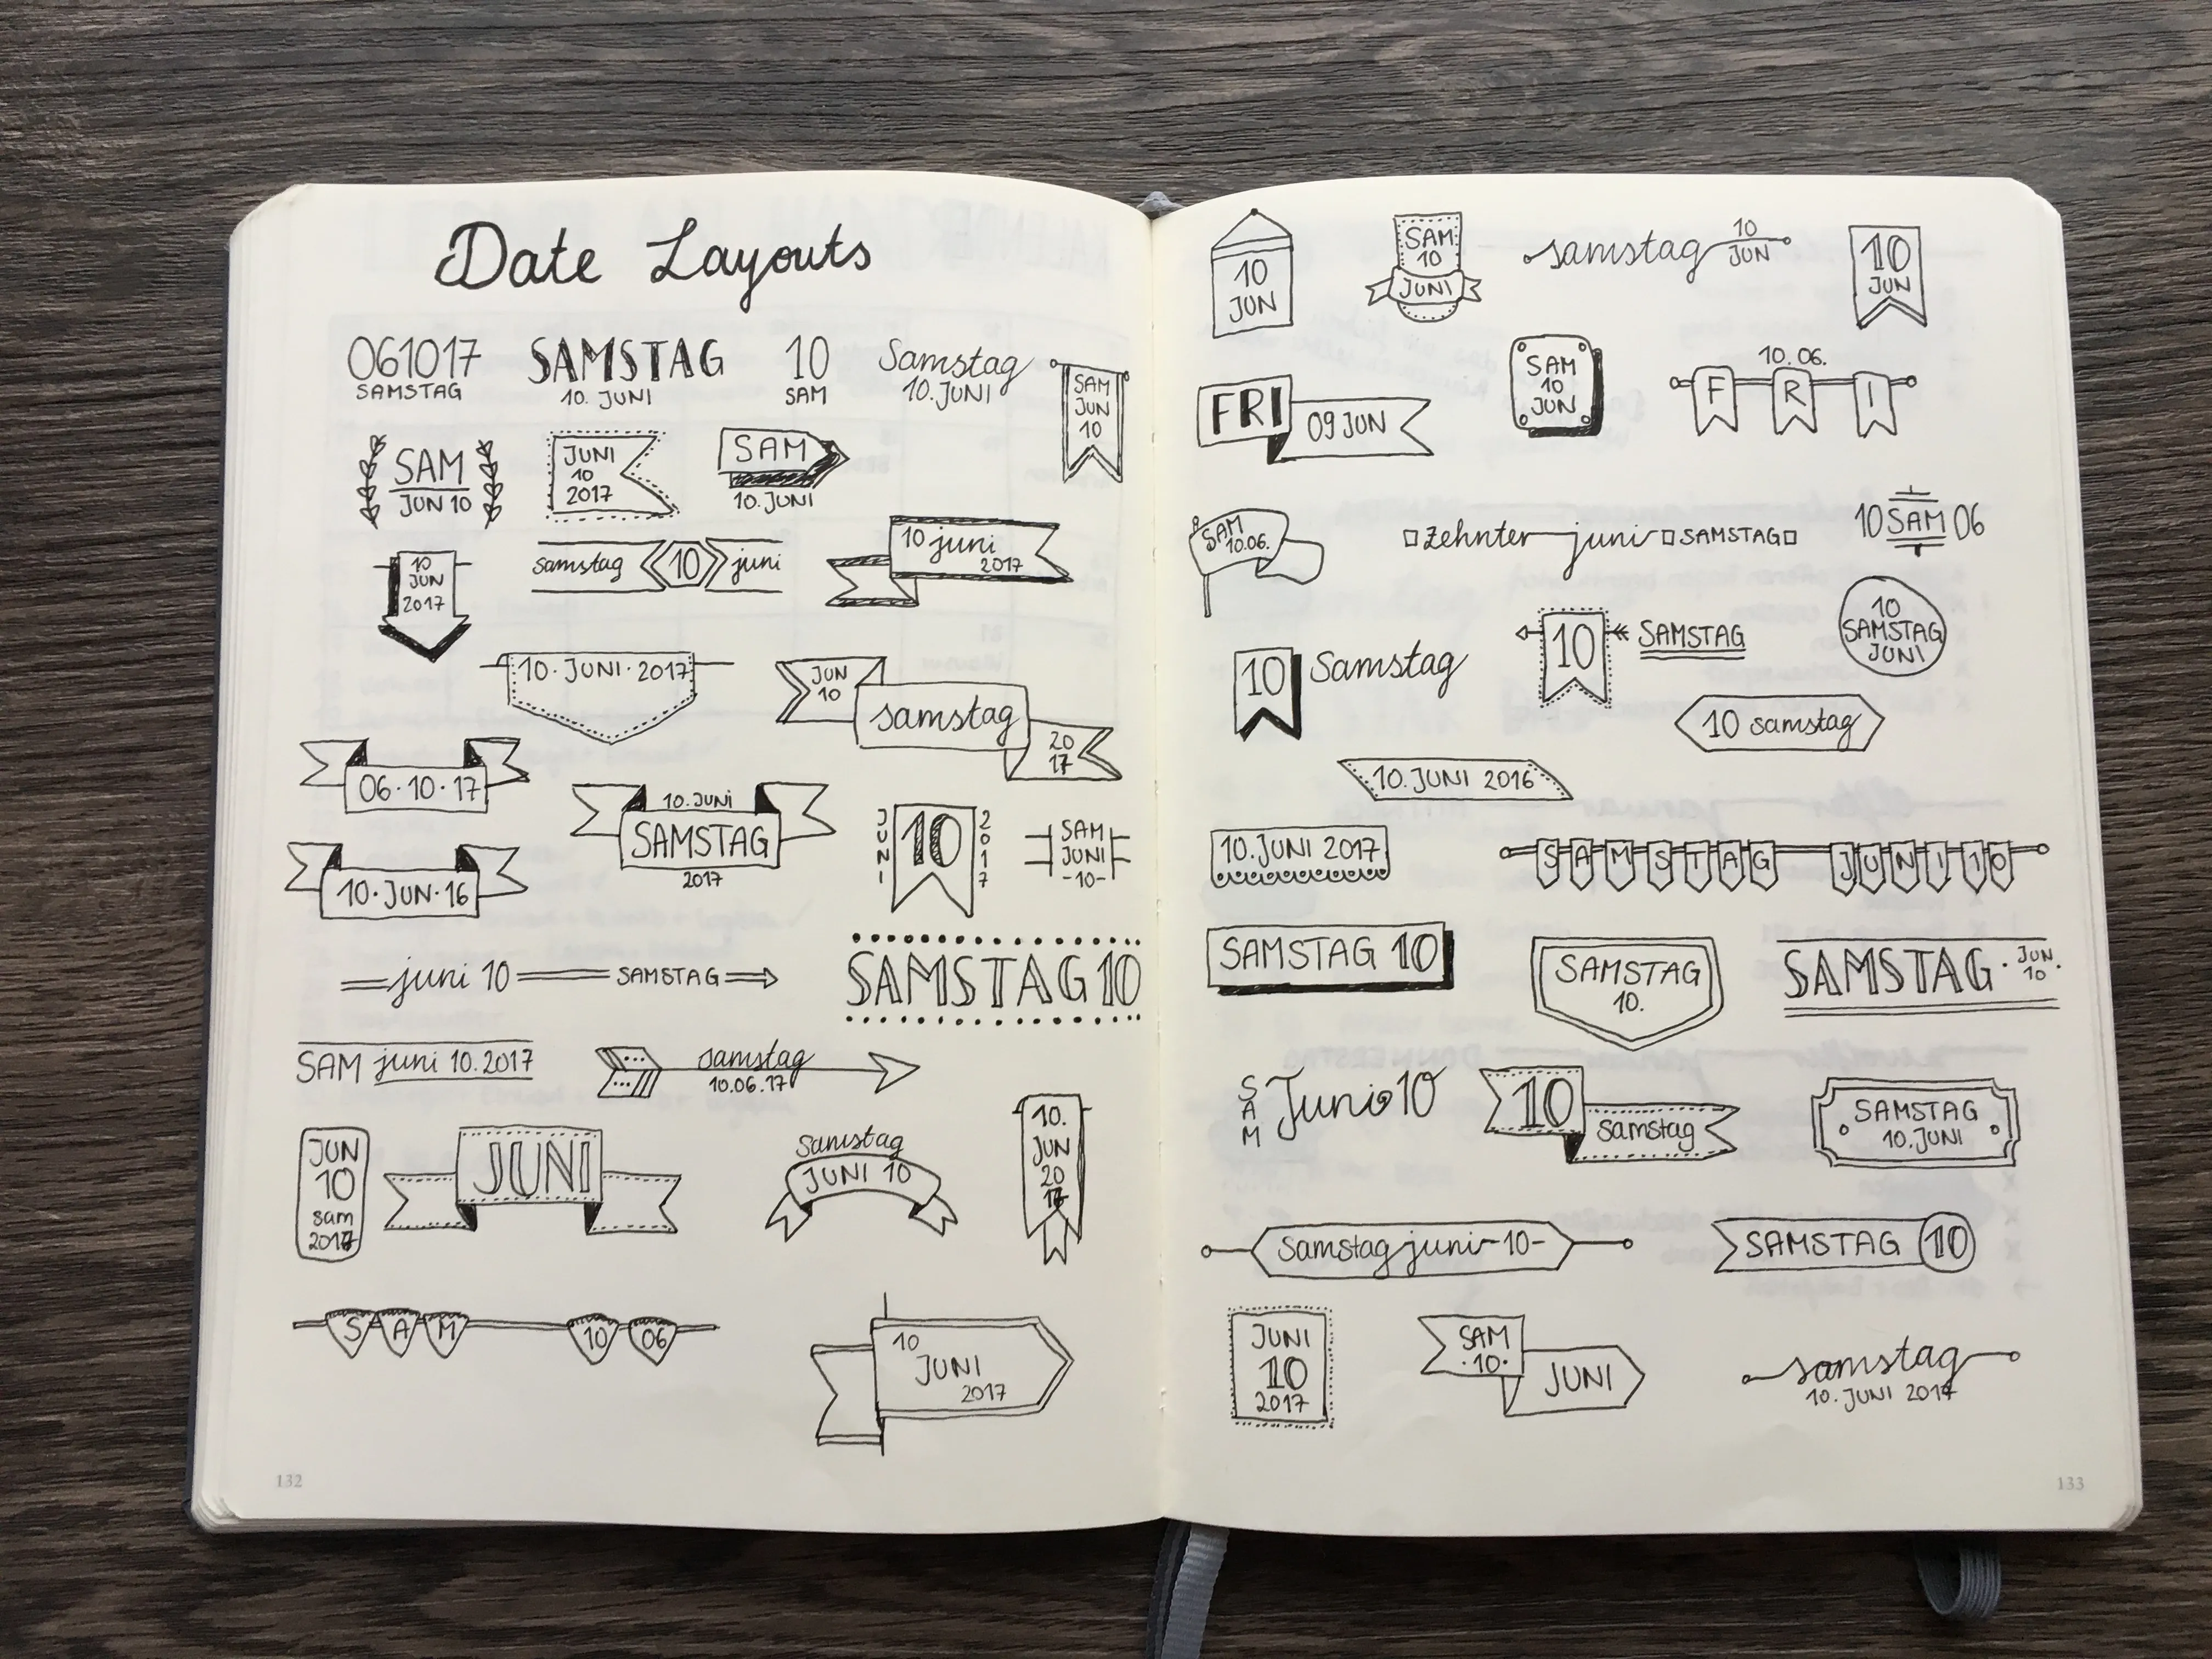 Date Layouts
061017
SAMSTAG
SAMSTAG
10. JUNI
10
SAM
Samstag
10. JUNI
SAM
JUN
10
SAM
JUN 10
JUNI
10
2017
SAM
10. JUNI
10
JUN
2017
samstag 10 juni
10 juni
2017
10·JUNI·2017
JUN
10
samstag
20
17
06·10·17
10. JUNI
SAMSTAG
2017
JUNI
10
2017
SAM
JUNI
-10-
10·JUN·16
juni 10 SAMSTAG
SAMSTAG 10
SAM juni 10.2017
samstag
10.06.17
JUN
10
sam
2017
JUNI
Samstag
JUNI 10
10.
JUN
20
17
SAM 10 06
10
JUNI
2017
132
10
JUN
SAM
10
JUNI
samstag 10
JUN
10
JUN
FRI
09 JUN
SAM
10
JUN
10.06.
FRI
SAM
10.06.
zehnter juni SAMSTAG
10 SAM 06
10 Samstag
10 SAMSTAG
10
SAMSTAG
JUNI
10 samstag
10. JUNI 2016
10. JUNI 2017
SAMSTAG JUNI 10
SAMSTAG 10
SAMSTAG
10.
SAMSTAG · JUN.
10
SAM
Juni 10
10
samstag
SAMSTAG
10. JUNI
Samstag juni -10-
SAMSTAG 10
JUNI
10
2017
SAM
·10·
JUNI
samstag
10. JUNI 2017
133